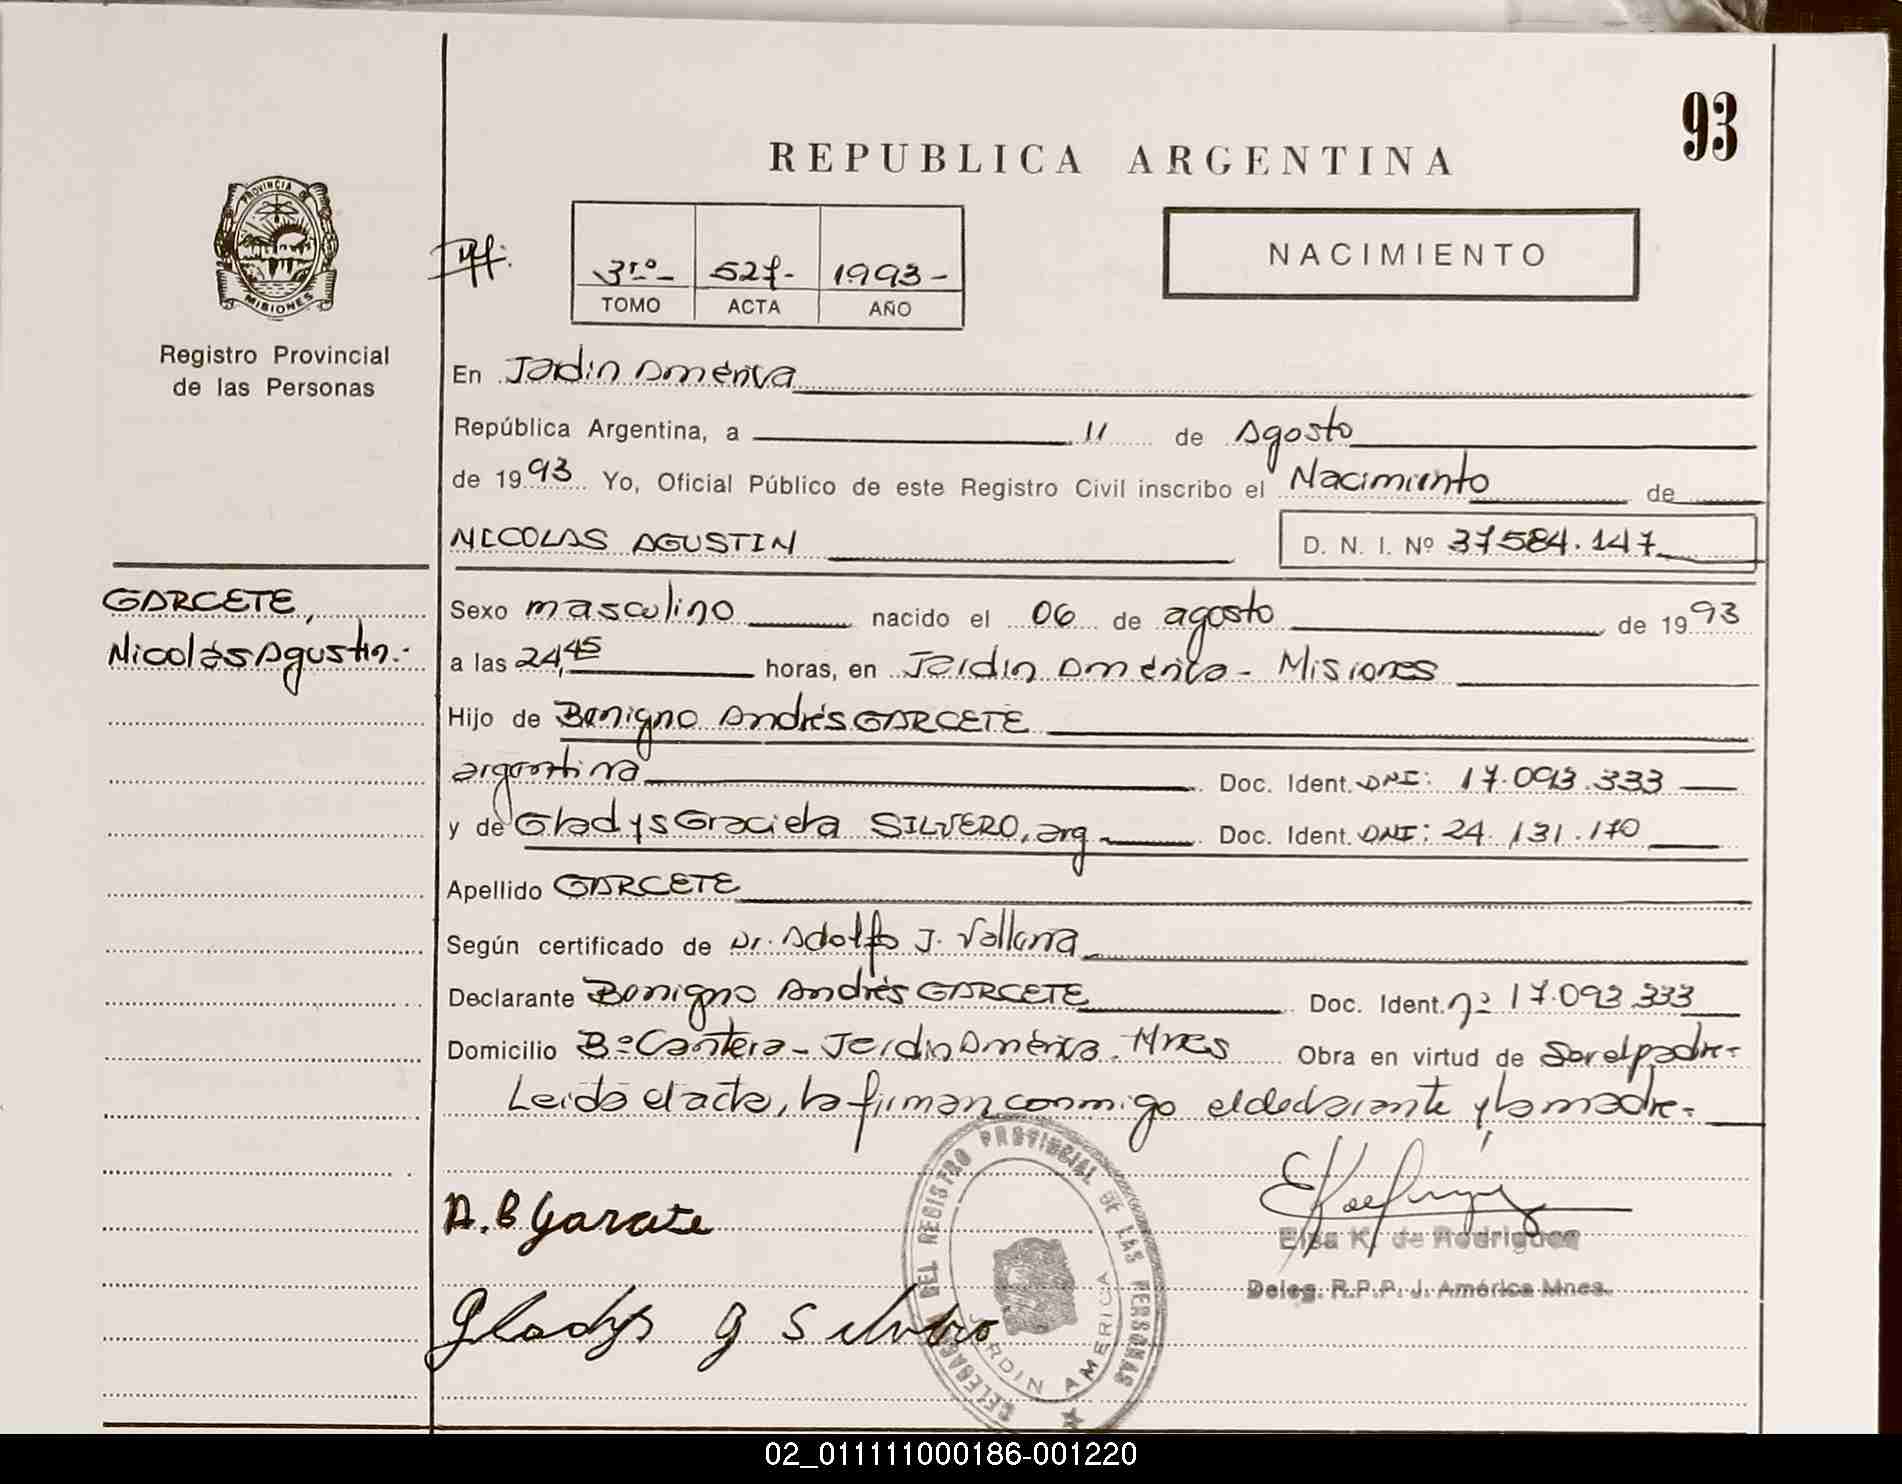 93
REPUBLICA ARGENTINA
PROVINCIA DE
MISIONES
Registro Provincial
de las Personas
3ro- 527- 1993-
TOMO ACTA AÑO
NACIMIENTO
En Jardin América
República Argentina, a 11 de Agosto
de 1993 Yo, Oficial Público de este Registro Civil inscribo el Nacimiento de
NICOLAS AGUSTIN D. N. I. Nº 37584.147
GARCETE,
Nicolás Agustin.-
Sexo masculino nacido el 06 de agosto de 1993
a las 24,45 horas, en Jardin América - Misiones
Hijo de Benigno Andrés GARCETE
argentina Doc. Ident. DNI: 17.093.333
y de Gladys Graciela SILVERO, arg Doc. Ident. DNI: 24.131.170
Apellido GARCETE
Según certificado de Dr. Adolfo J.
Declarante Benigno Andrés GARCETE Doc. Ident. nº 17.093.333
Domicilio Bº Cantera - Jardin América. Mnes Obra en virtud de Ser el padre-
Leida el acta, la firman conmigo el declarante y la madre.-
A. B Garcete
Gladys G Silvero
DELEGACION DEL REGISTRO PROVINCIAL DE LAS PERSONAS
JARDIN AMERICA
Elsa K. de Rodriguez
Deleg. R.P.P. J. América Mnes.
02_011111000186-001220